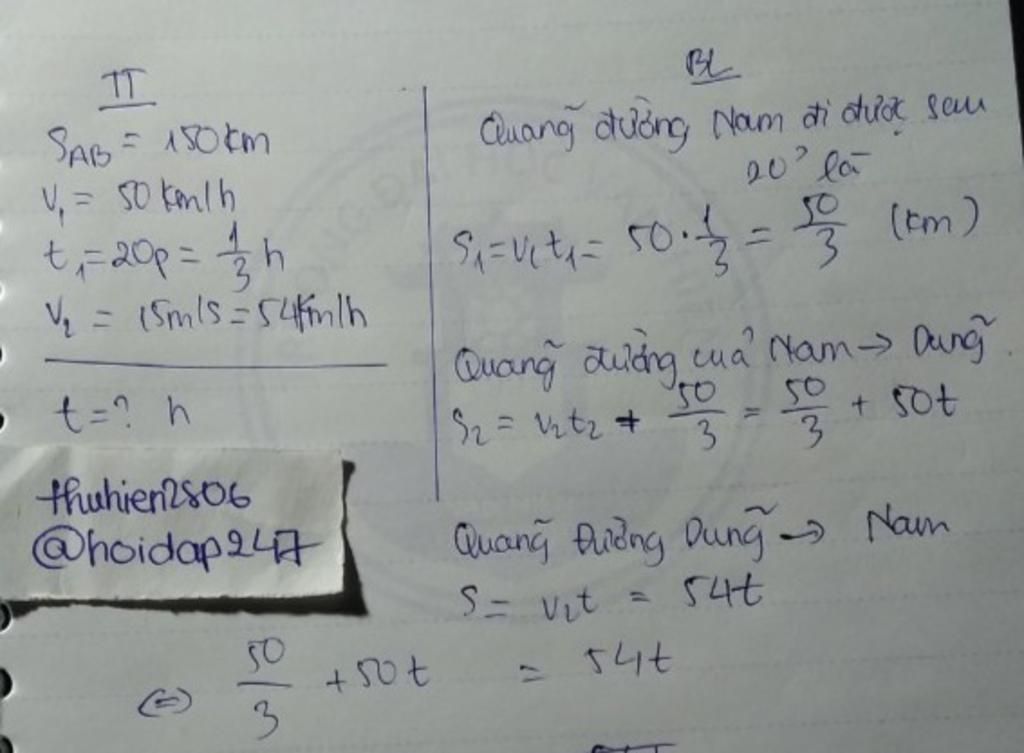 TT
S_AB = 150km
V₁ = 50km/h
t₁ = 20p = 1/3 h
V₂ = 15m/s = 54km/h
t = ? h
thuhien2806
@hoidap247
BL
Quãng đường Nam đi được sau
20' là
S₁ = v₁t₁ = 50 · 1/3 = 50/3 (km)
Quãng đường của Nam → Dũng
S₂ = v₂t₂ + 50/3 = 50/3 + 50t
Quãng Đường Dũng → Nam
S = v₂t = 54t
⇔ 50/3 + 50t = 54t